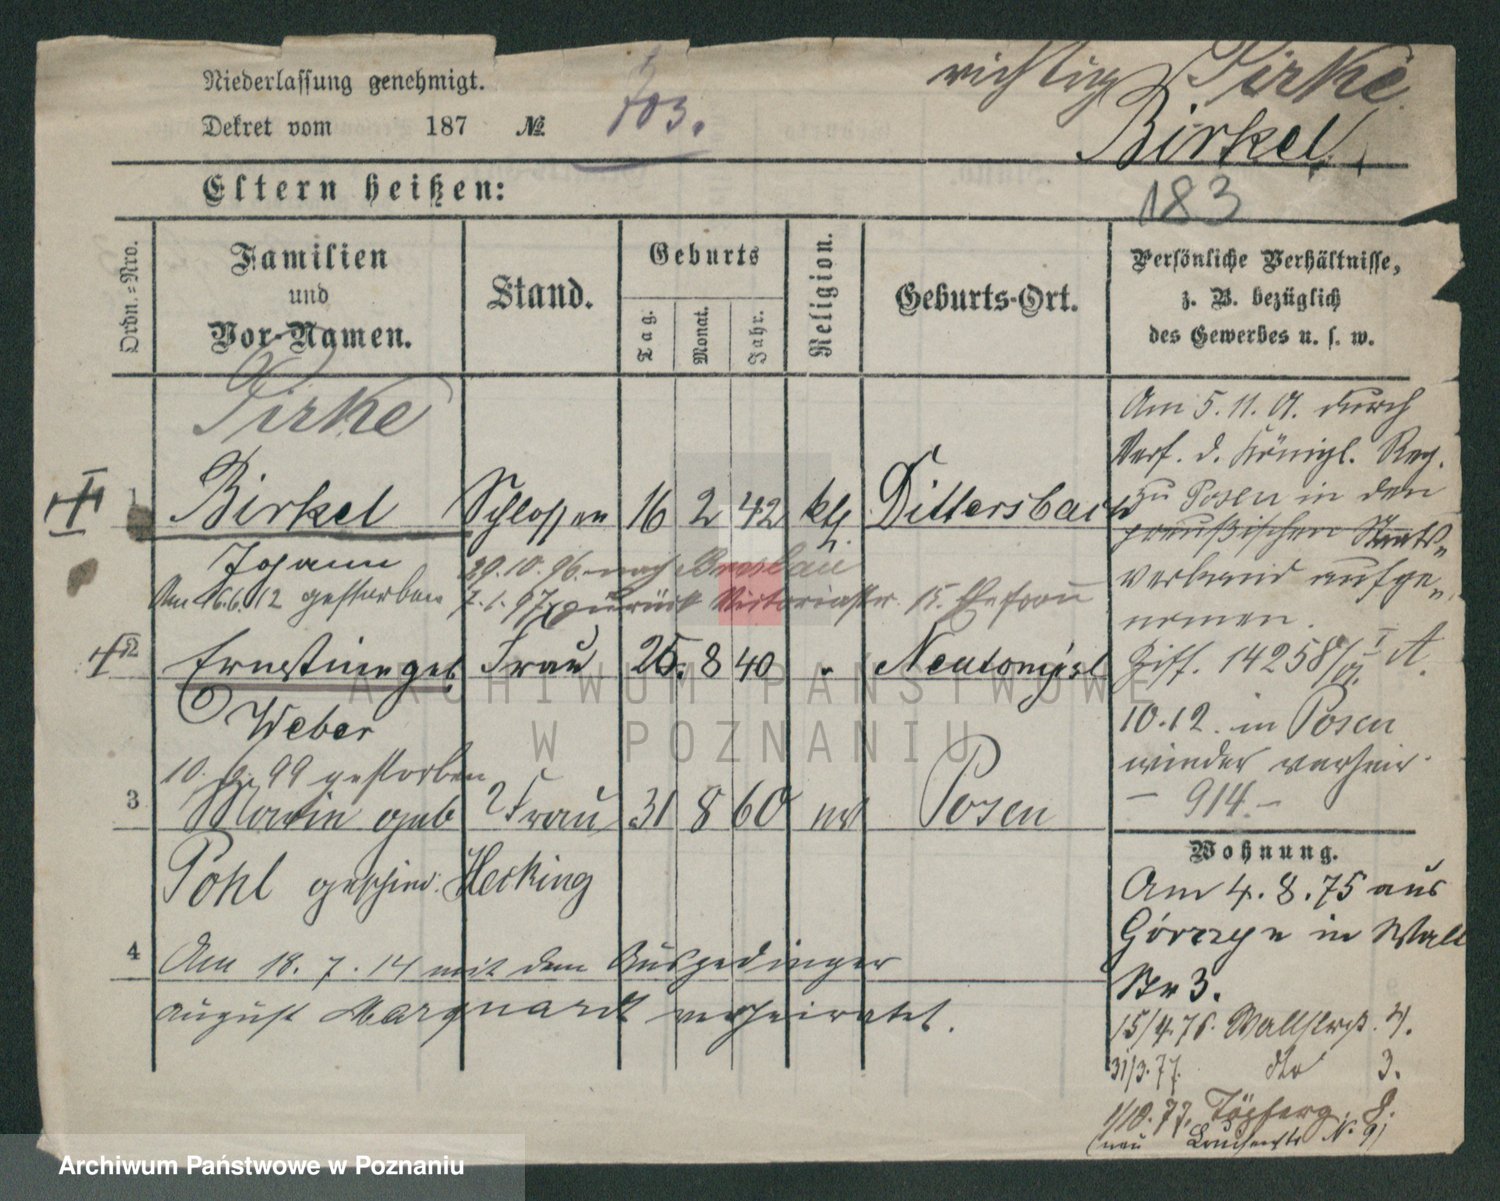 Niederlassung genehmigt.
Dekret vom 187 № 703.
richtig Pirke
Birkel,
183
Eltern heißen:
Ordn.=Nro.
Familien
und
Vor-Namen.
Stand.
Geburts
Tag.
Monat.
Jahr.
Religion.
Geburts-Ort.
Persönliche Verhältnisse,
z. B. bezüglich
des Gewerbes u. s. w.
Pirke
1 Birkel Schlosser 16 2 42 kth. Dittersbach
Johann 29.10.96. nach Breslau
Am 16.6.12 gestorben 7.1.97 zurück Victoriastr. 15. Ehefrau
2 Ernstine geb Frau 25. 8 40 " Neutomysl
Weber
10. 99 gestorben
3 Marie geb Frau 31 8 60 Posen
Pohl geschied. Hecking
4 Am 18.7.14 mit dem Ausgedinger
August Marquardt verheiratet.
Am 5.11.01. durch
Verf. d. Königl. Reg.
zu Posen in den
preußischen Staats-
verband aufge-
nomen.
Ziff. 14258/01 I A.
10.12. in Posen
wieder verheir.
– 914 –
Wohnung.
Am 4.8.75 aus
Górczyn in Wall
Str 3.
15/4.76. Wallstrß. 4.
31/3.77 dto 3.
1/10.77. Töpferg. 8.
(neu N. 9)
ARCHIWUM PAŃSTWOWE
W POZNANIU
Archiwum Państwowe w Poznaniu